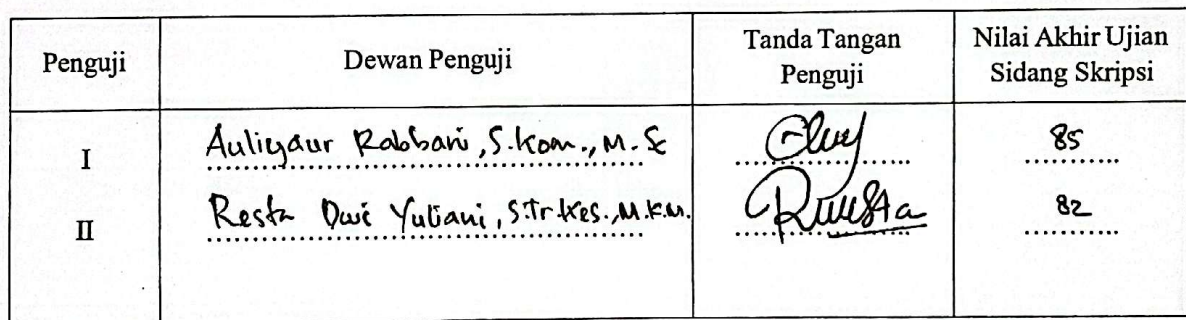 Penguji Dewan Penguji Tanda Tangan Penguji Nilai Akhir Ujian Sidang Skripsi
I Auliyaur Rabbani, S.Kom., M.Sc 85
II Resta Dwi Yuliani, S.Tr.Kes., M.K.M. 82